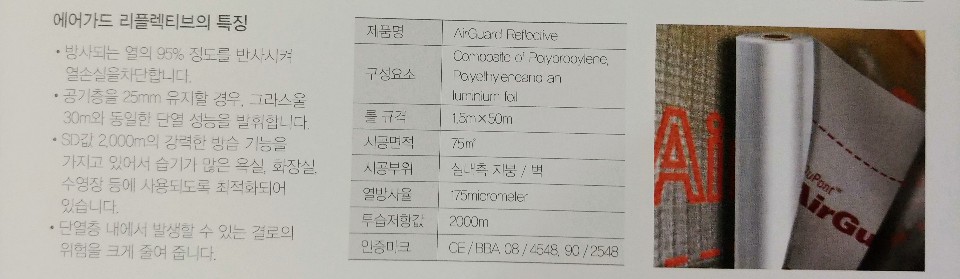 에어가드 리플렉티브의 특징
• 방사되는 열의 95% 정도를 반사시켜
열손실을차단합니다.
• 공기층을 25mm 유지할 경우, 그라스울
30m와 동일한 단열 성능을 발휘합니다.
• SD값 2,000m의 강력한 방습 기능을
가지고 있어서 습기가 많은 욕실, 화장실,
수영장 등에 사용되도록 최적화되어
있습니다.
• 단열층 내에서 발생할 수 있는 결로의
위험을 크게 줄여 줍니다.
제품명 AirGuard Reflective
구성요소 Composite of Polypropylene,
Polyethyleneand an
luminium foil
롤 규격 1.5m×50m
시공면적 75㎡
시공부위 실내측 지붕 / 벽
열방사율 175micrometer
투습저항값 2000m
인증마크 CE / BBA 08 / 4548, 90 / 2548
Ai
DuPont™
AirGu